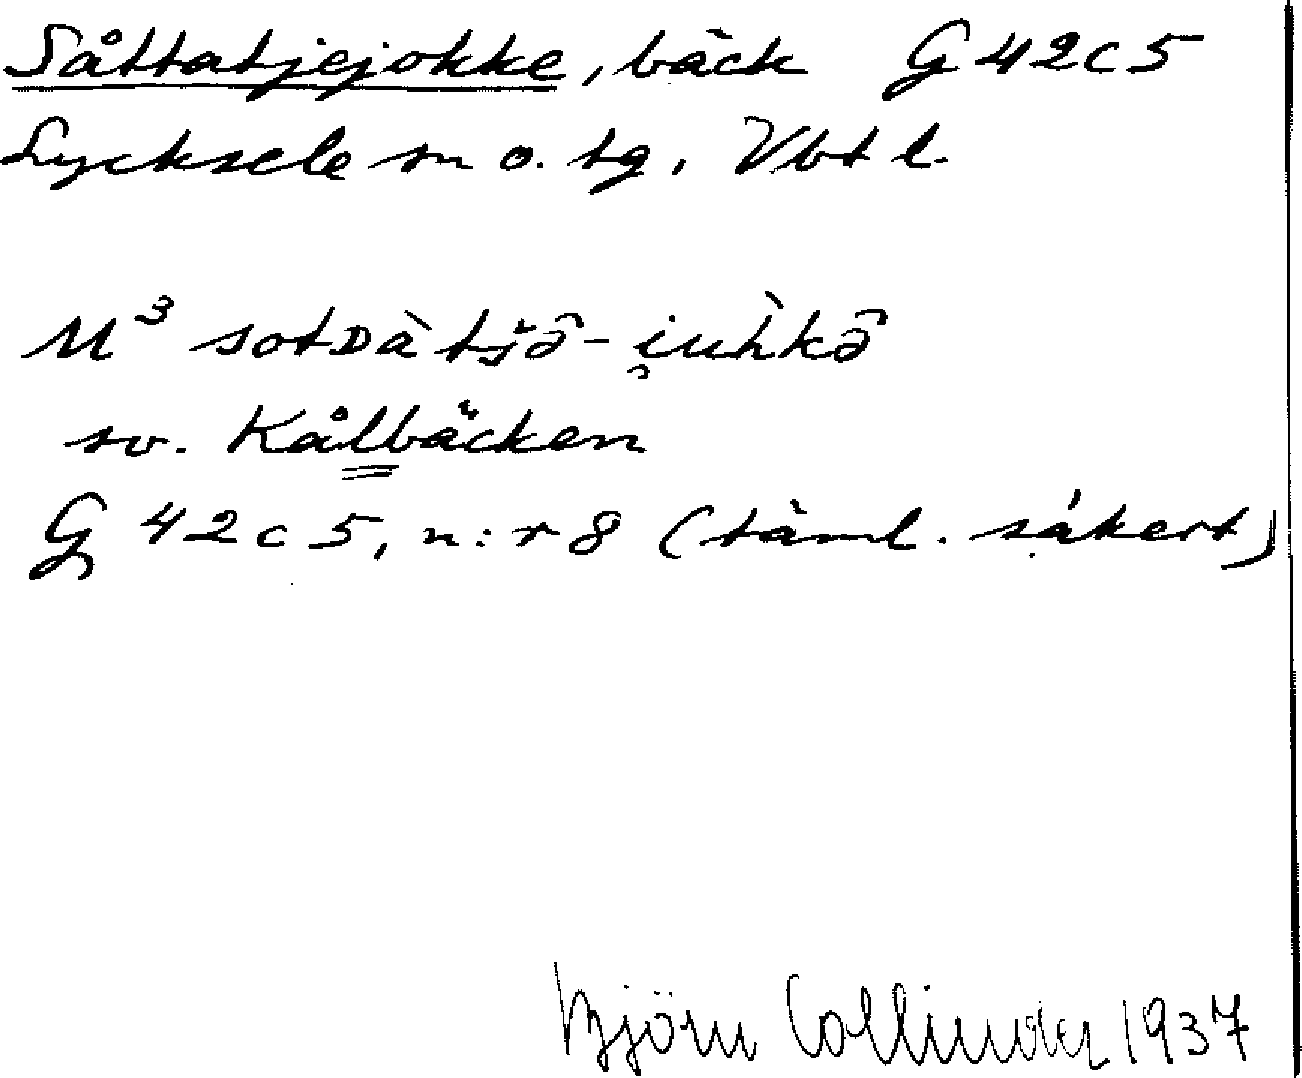 Såttatjejokke, bäck G 42 c 5
Lycksele sn o. tg, Vbt l.
M³ sotDà tj̆ə̑-i̯uh̀kə̑
sv. Kålbäcken
G 42 c 5, n:r 8 (täml. säkert)
Björn Collinder 1937